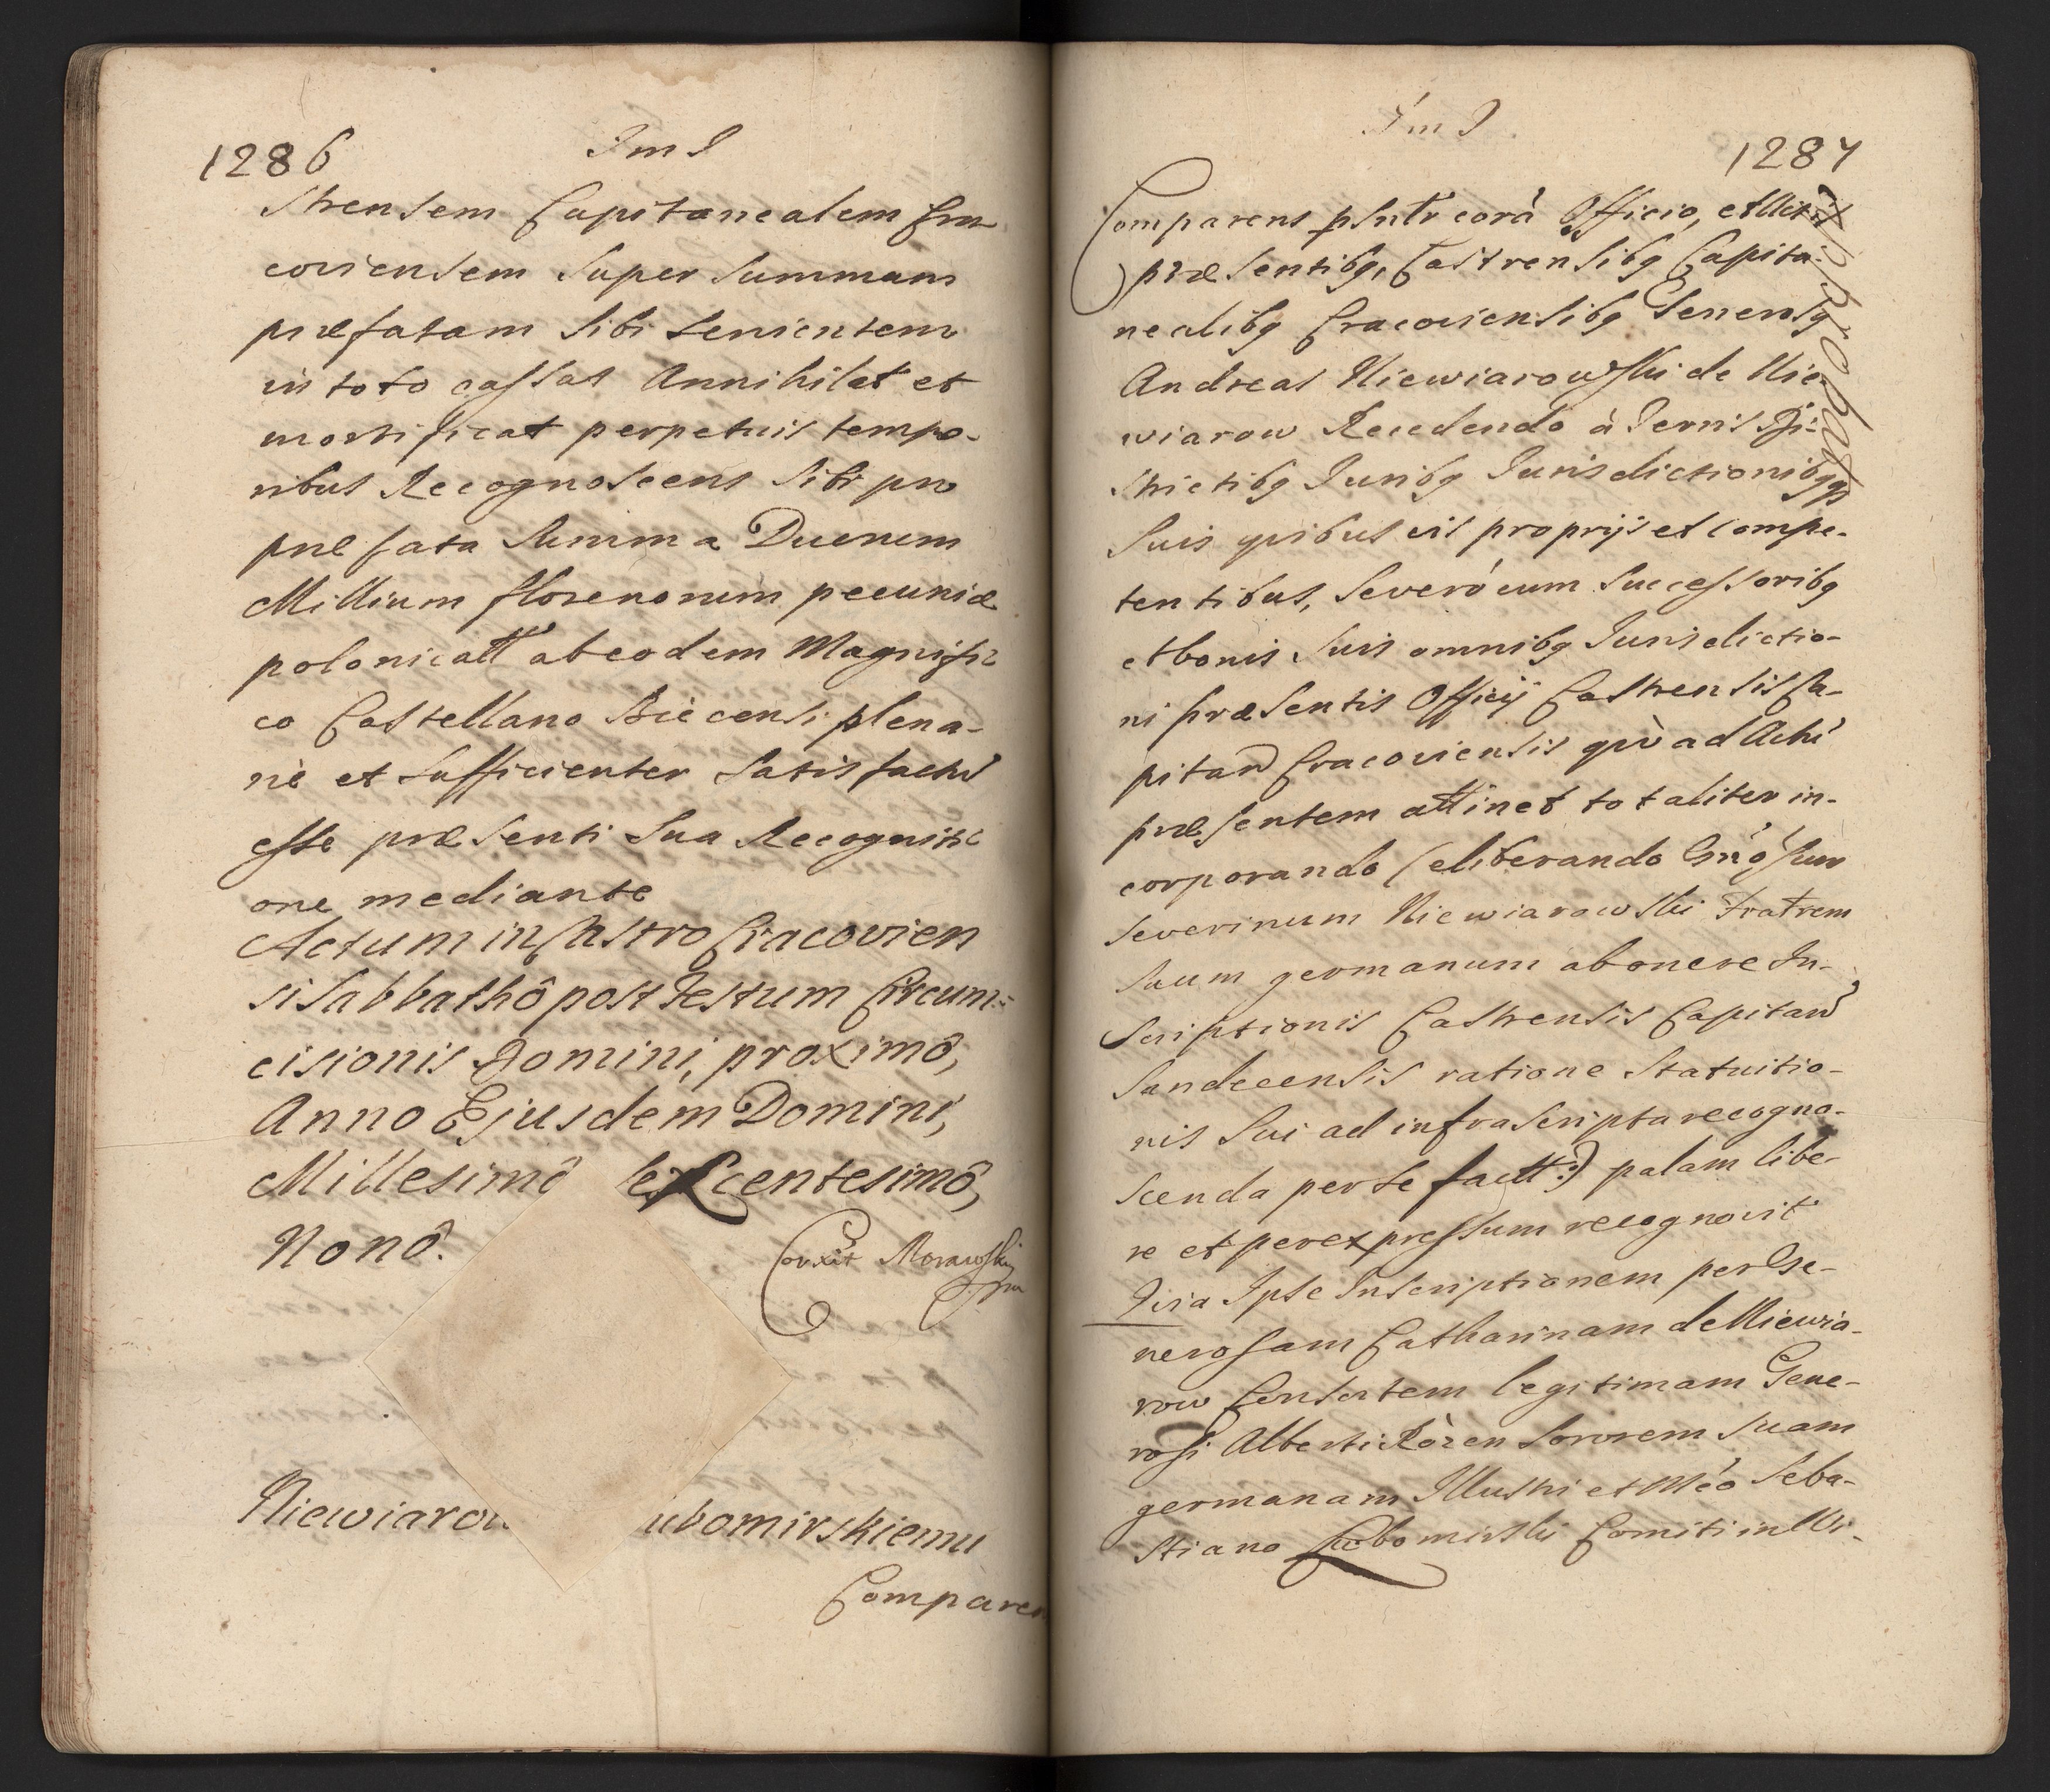 1286
ImJ
strensem Capitanealem Cra
coviensem super summam
præfatam sibi servientem
in toto cassat Annihilat et
mortificat perpetuis tempo-
ribus Recognoscens sibi pro
præfata summa Duorum
Millium florenorum pecuniæ
polonicatt ab eodem Magnifi
co Castellano Biecensi plena-
riè et sufficienter satisfactũ
esse præsenti sua Recogniti
one mediante
Actum in Castro Cracovien
si Sabbathô post Festum Circum=
cisionis Domini, proximô,
Anno Ejusdem Domini,
Millesimô sexcentesimô,
Nonô.
Corxit Morawski
Niewiarow ubomirskiemu
Comparen
ImJ
1287
Comparens psntr corã Officio, et Actis
præsentibg, Castrensibg Capita-
nealibg Cracoviensibg Generosg
Andreas Niewiarowski de Nie-
wiarow Recedendo à Terris Di-
strictibg Juribg Jurisdictionibgqs
suis quibus vis proprijs et compe-
tentibus, se verò cum successoribg
et bonis suis omnibg Jurisdictio-
ni præsentis Officij Castrensis Ca-
pitan Cracoviensis quò ad Actũ
præsentem attinet totaliter in-
corporando (eliberando Gnõsum
Severinum Niewiarowski Fratrem
suum germanum ab onere In-
scriptionis Castrensis Capitan
Sandecensis ratione statuitio-
nis sui ad infrascripta recogno-
scenda per se factt:) palam libe-
re et per expressum recognovit
Quia Ipse Inscriptionem per Ge-
nerosam Catharinam de Niewia-
row Consortem legitimam Gene-
rosi Alberti Rożen Sororem suam
germanam Illustri et Mcõ Seba-
stiano Lubomirski Comiti in Wi-
Approbat